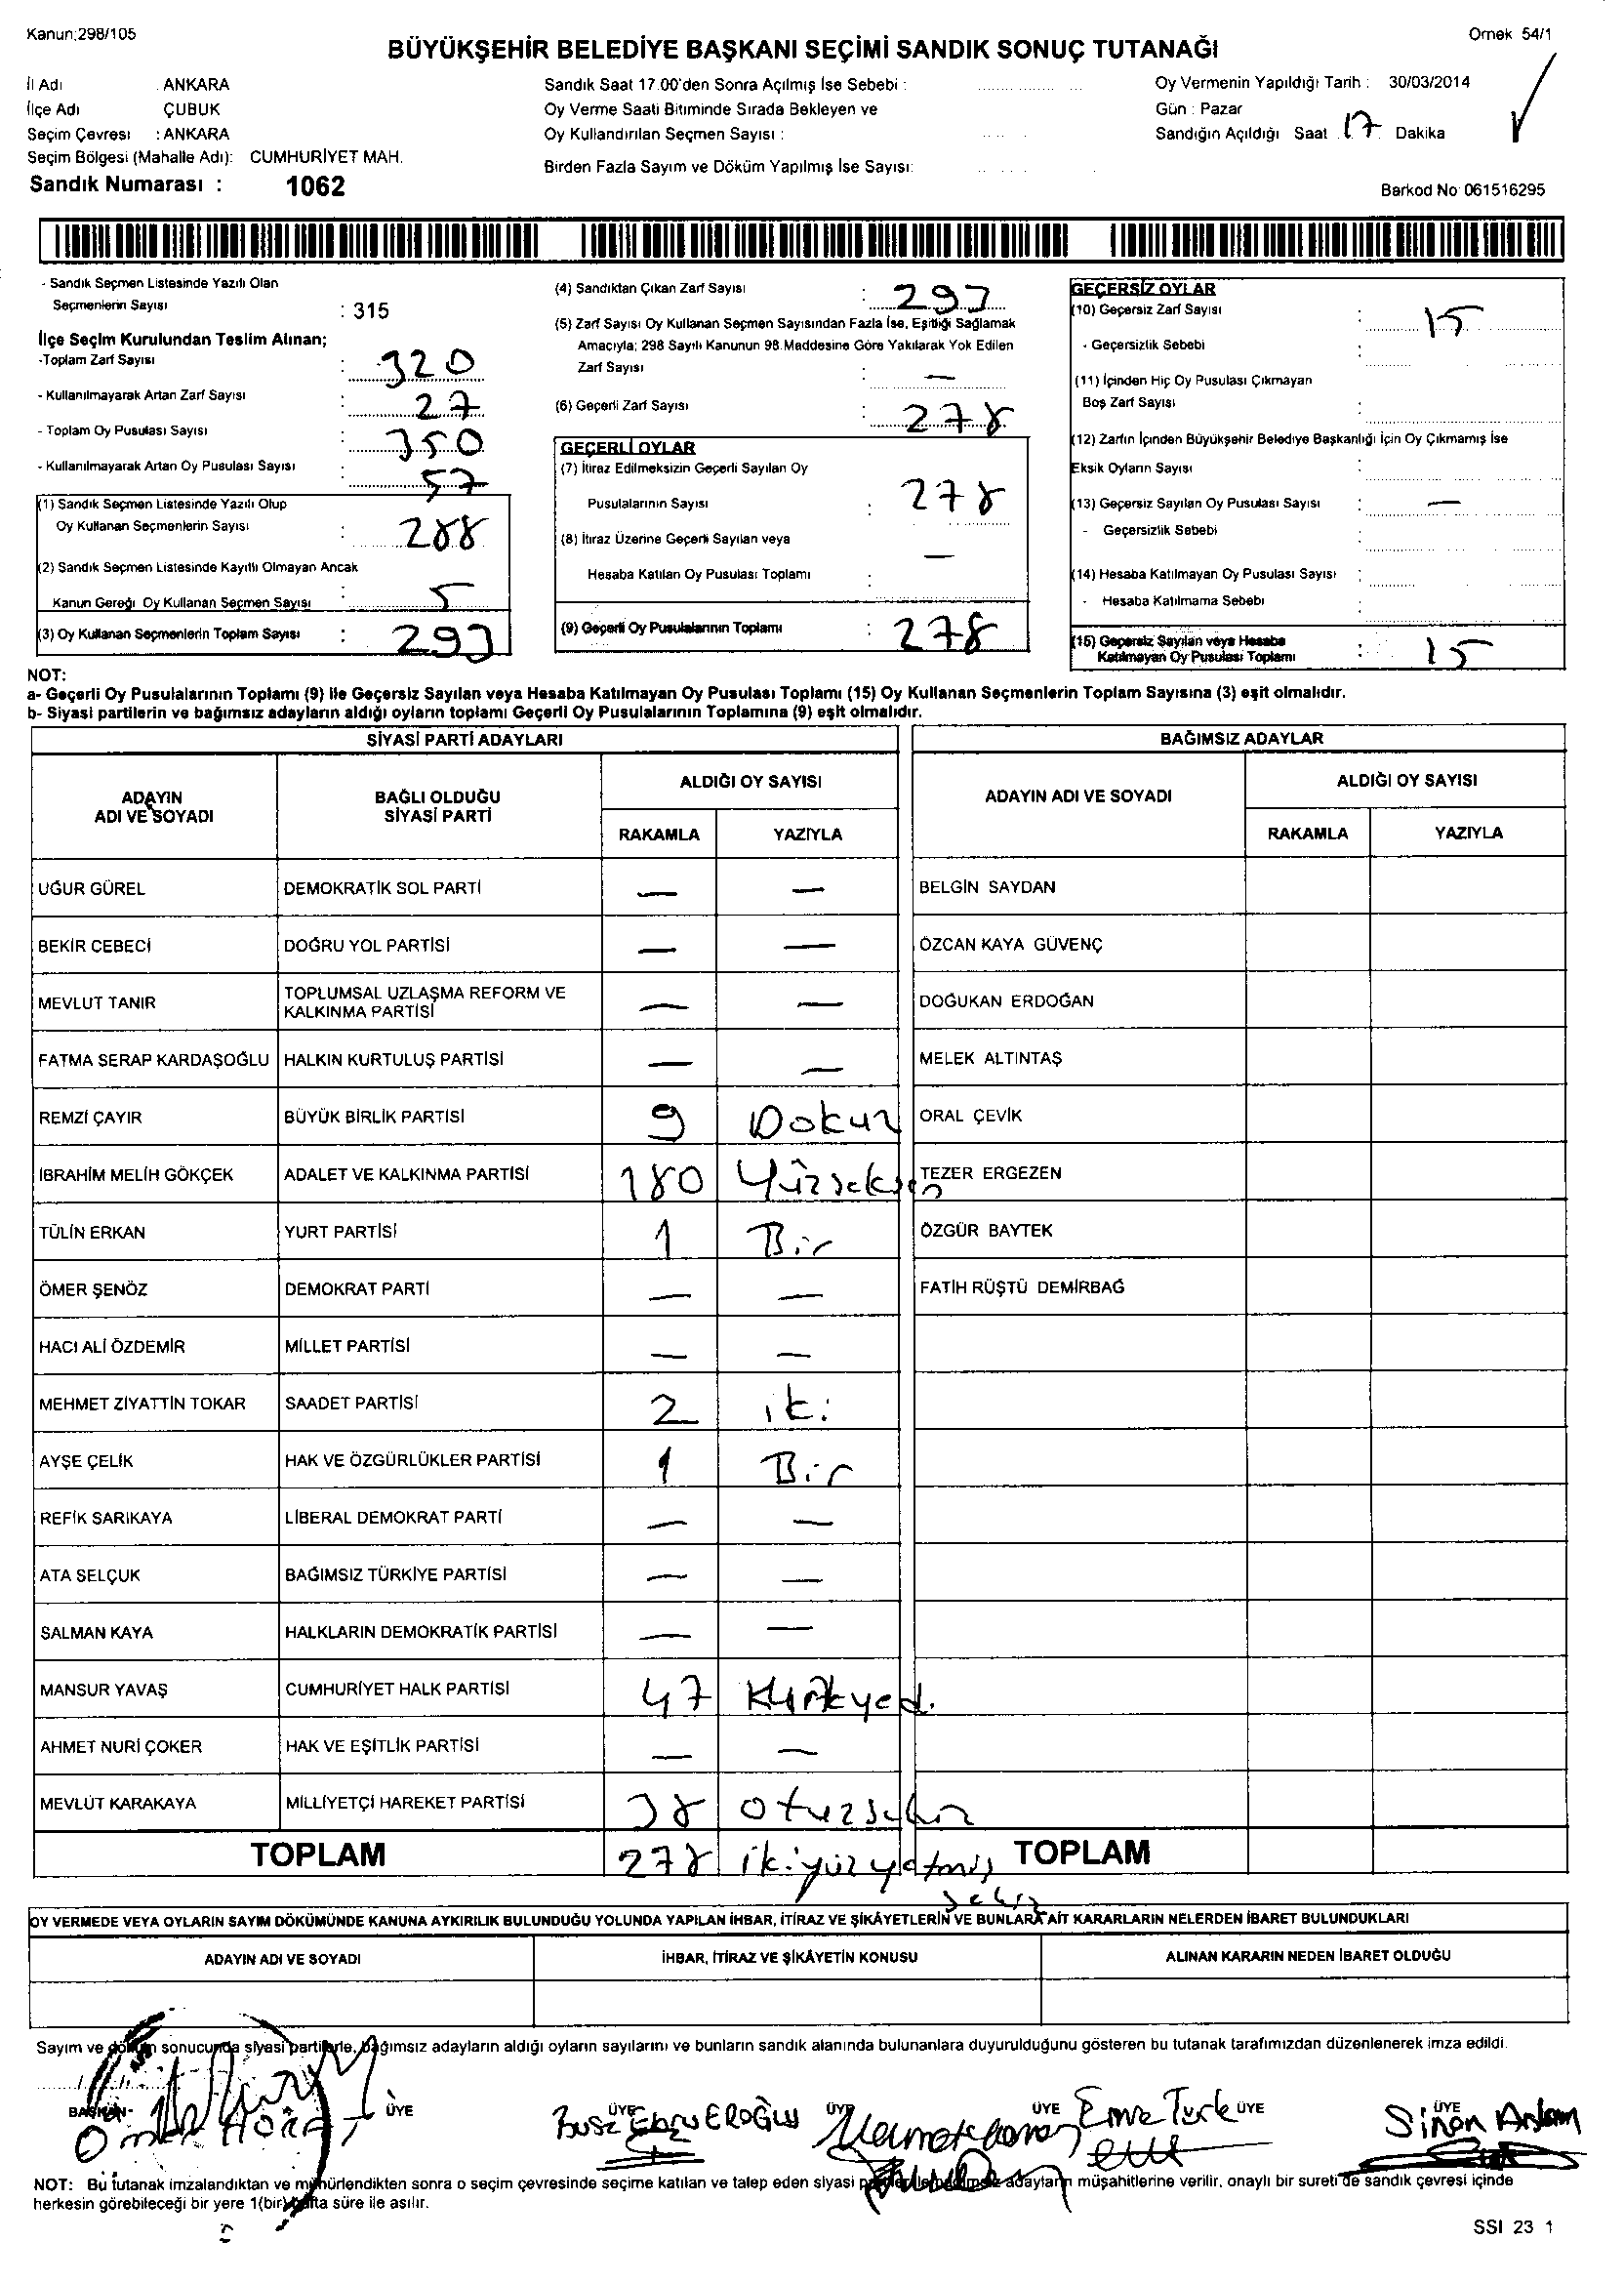 Kanun:298/105
Örnek 54/1
BÜYÜKŞEHİR BELEDİYE BAŞKANI SEÇİMİ SANDIK SONUÇ TUTANAĞI
İl Adı : ANKARA
İlçe Adı ÇUBUK
Seçim Çevresi : ANKARA
Seçim Bölgesi (Mahalle Adı): CUMHURİYET MAH.
Sandık Numarası : 1062
Sandık Saat 17.00'den Sonra Açılmış İse Sebebi :
Oy Verme Saati Bitiminde Sırada Bekleyen ve
Oy Kullandırılan Seçmen Sayısı :
Birden Fazla Sayım ve Döküm Yapılmış İse Sayısı:
Oy Vermenin Yapıldığı Tarih : 30/03/2014
Gün : Pazar
Sandığın Açıldığı Saat 17 Dakika
Barkod No 061516295
- Sandık Seçmen Listesinde Yazılı Olan
Seçmenlerin Sayısı : 315
İlçe Seçim Kurulundan Teslim Alınan;
-Toplam Zarf Sayısı : 320
- Kullanılmayarak Artan Zarf Sayısı : 27
- Toplam Oy Pusulası Sayısı : 350
- Kullanılmayarak Artan Oy Pusulası Sayısı : 57
(1) Sandık Seçmen Listesinde Yazılı Olup
Oy Kullanan Seçmenlerin Sayısı : 288
(2) Sandık Seçmen Listesinde Kayıtlı Olmayan Ancak
Kanun Gereği Oy Kullanan Seçmen Sayısı : 5
(3) Oy Kullanan Seçmenlerin Toplam Sayısı : 293
(4) Sandıktan Çıkan Zarf Sayısı : 293
(5) Zarf Sayısı Oy Kullanan Seçmen Sayısından Fazla İse, Eşitliği Sağlamak
Amacıyla; 298 Sayılı Kanunun 98.Maddesine Göre Yakılarak Yok Edilen
Zarf Sayısı : —
(6) Geçerli Zarf Sayısı : 278
GEÇERLİ OYLAR
(7) İtiraz Edilmeksizin Geçerli Sayılan Oy
Pusulalarının Sayısı : 278
(8) İtiraz Üzerine Geçerli Sayılan veya
Hesaba Katılan Oy Pusulası Toplamı : —
(9) Geçerli Oy Pusulalarının Toplamı : 278
GEÇERSİZ OYLAR
(10) Geçersiz Zarf Sayısı : 15
- Geçersizlik Sebebi :
(11) İçinden Hiç Oy Pusulası Çıkmayan
Boş Zarf Sayısı :
(12) Zarfın İçinden Büyükşehir Belediye Başkanlığı İçin Oy Çıkmamış İse
Eksik Oyların Sayısı :
(13) Geçersiz Sayılan Oy Pusulası Sayısı : —
- Geçersizlik Sebebi :
(14) Hesaba Katılmayan Oy Pusulası Sayısı :
- Hesaba Katılmama Sebebi :
(15) Geçersiz Sayılan veya Hesaba
Katılmayan Oy Pusulası Toplamı : 15
NOT:
a- Geçerli Oy Pusulalarının Toplamı (9) ile Geçersiz Sayılan veya Hesaba Katılmayan Oy Pusulası Toplamı (15) Oy Kullanan Seçmenlerin Toplam Sayısına (3) eşit olmalıdır.
b- Siyasi partilerin ve bağımsız adayların aldığı oyların toplamı Geçerli Oy Pusulalarının Toplamına (9) eşit olmalıdır.
SİYASİ PARTİ ADAYLARI BAĞIMSIZ ADAYLAR
ADAYIN ADI VE SOYADI BAĞLI OLDUĞU SİYASİ PARTİ ALDIĞI OY SAYISI ADAYIN ADI VE SOYADI ALDIĞI OY SAYISI
RAKAMLA YAZIYLA RAKAMLA YAZIYLA
UĞUR GÜREL DEMOKRATİK SOL PARTİ — — BELGİN SAYDAN
BEKİR CEBECİ DOĞRU YOL PARTİSİ — — ÖZCAN KAYA GÜVENÇ
MEVLUT TANIR TOPLUMSAL UZLAŞMA REFORM VE KALKINMA PARTİSİ — — DOĞUKAN ERDOĞAN
FATMA SERAP KARDAŞOĞLU HALKIN KURTULUŞ PARTİSİ — — MELEK ALTINTAŞ
REMZİ ÇAYIR BÜYÜK BİRLİK PARTİSİ 9 Dokuz ORAL ÇEVİK
İBRAHİM MELİH GÖKÇEK ADALET VE KALKINMA PARTİSİ 180 Yüzseksen TEZER ERGEZEN
TÜLİN ERKAN YURT PARTİSİ 1 Bir ÖZGÜR BAYTEK
ÖMER ŞENÖZ DEMOKRAT PARTİ — — FATİH RÜŞTÜ DEMİRBAĞ
HACI ALİ ÖZDEMİR MİLLET PARTİSİ — —
MEHMET ZİYATTİN TOKAR SAADET PARTİSİ 2 iki
AYŞE ÇELİK HAK VE ÖZGÜRLÜKLER PARTİSİ 1 Bir
REFİK SARIKAYA LİBERAL DEMOKRAT PARTİ — —
ATA SELÇUK BAĞIMSIZ TÜRKİYE PARTİSİ — —
SALMAN KAYA HALKLARIN DEMOKRATİK PARTİSİ — —
MANSUR YAVAŞ CUMHURİYET HALK PARTİSİ 47 Kırkyedi
AHMET NURİ ÇOKER HAK VE EŞİTLİK PARTİSİ — —
MEVLÜT KARAKAYA MİLLİYETÇİ HAREKET PARTİSİ 38 otuzsekiz
TOPLAM 278 ikiyüz yetmiş sekiz TOPLAM
OY VERMEDE VEYA OYLARIN SAYIM DÖKÜMÜNDE KANUNA AYKIRILIK BULUNDUĞU YOLUNDA YAPILAN İHBAR, İTİRAZ VE ŞİKÂYETLERİN VE BUNLARA AİT KARARLARIN NELERDEN İBARET BULUNDUKLARI
ADAYIN ADI VE SOYADI İHBAR, İTİRAZ VE ŞİKÂYETİN KONUSU ALINAN KARARIN NEDEN İBARET OLDUĞU
Sayım ve döküm sonucunda siyasi partilerle, bağımsız adayların aldığı oyların sayılarını ve bunların sandık alanında bulunanlara duyurulduğunu gösteren bu tutanak tarafımızdan düzenlenerek imza edildi.
BAŞKAN ÜYE ÜYE ÜYE ÜYE ÜYE ÜYE
EROĞLU Emre Türk Sinan Arslan
NOT: Bu tutanak imzalandıktan ve mühürlendikten sonra o seçim çevresinde seçime katılan ve talep eden siyasi adayların müşahitlerine verilir, onaylı bir sureti de sandık çevresi içinde
herkesin görebileceği bir yere 1(bir) hafta süre ile asılır.
SSI 23 1